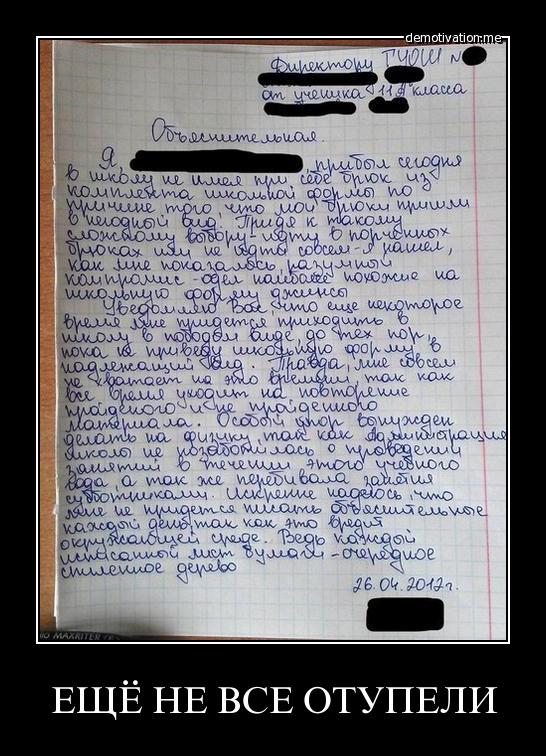 demotivation.me
Директору ГУОШ №
от ученика 11"А" класса
Объяснительная.
Я, , прибыл сегодня
в школу не имея при себе брюк из
комплекта школьной формы по
причине того, что мои брюки пришли
в негодный вид. Придя к такому
сложному выбору - идти в порченных
брюках или не идти совсем - я нашел,
как мне показалось, разумный
компромис - одел наиболее похожие на
школьную форму джинсы
Уведомляю Вас, что еще некоторое
время мне придется приходить в
школу в подобном виде, до тех пор,
пока не приведу школьную форму в
надлежащий вид. Правда, мне совсем
не хватает на это времени, так как
все время уходит на повторение
пройденого и не пройденного
материала. Особый упор вынужден
делать на физику, так как администрация
школы не позаботилась о проведении
занятий в течении этого учебного
года, а так же перебивала занятия
субботниками. Искренне надеюсь, что
мне не придется писать объяснительные
каждый день, так как это вредит
окружающей среде. Ведь каждый
исписанный лист бумаги - очередное
спиленное дерево
26.04.2012г.
MAXRITER
ЕЩЁ НЕ ВСЕ ОТУПЕЛИ